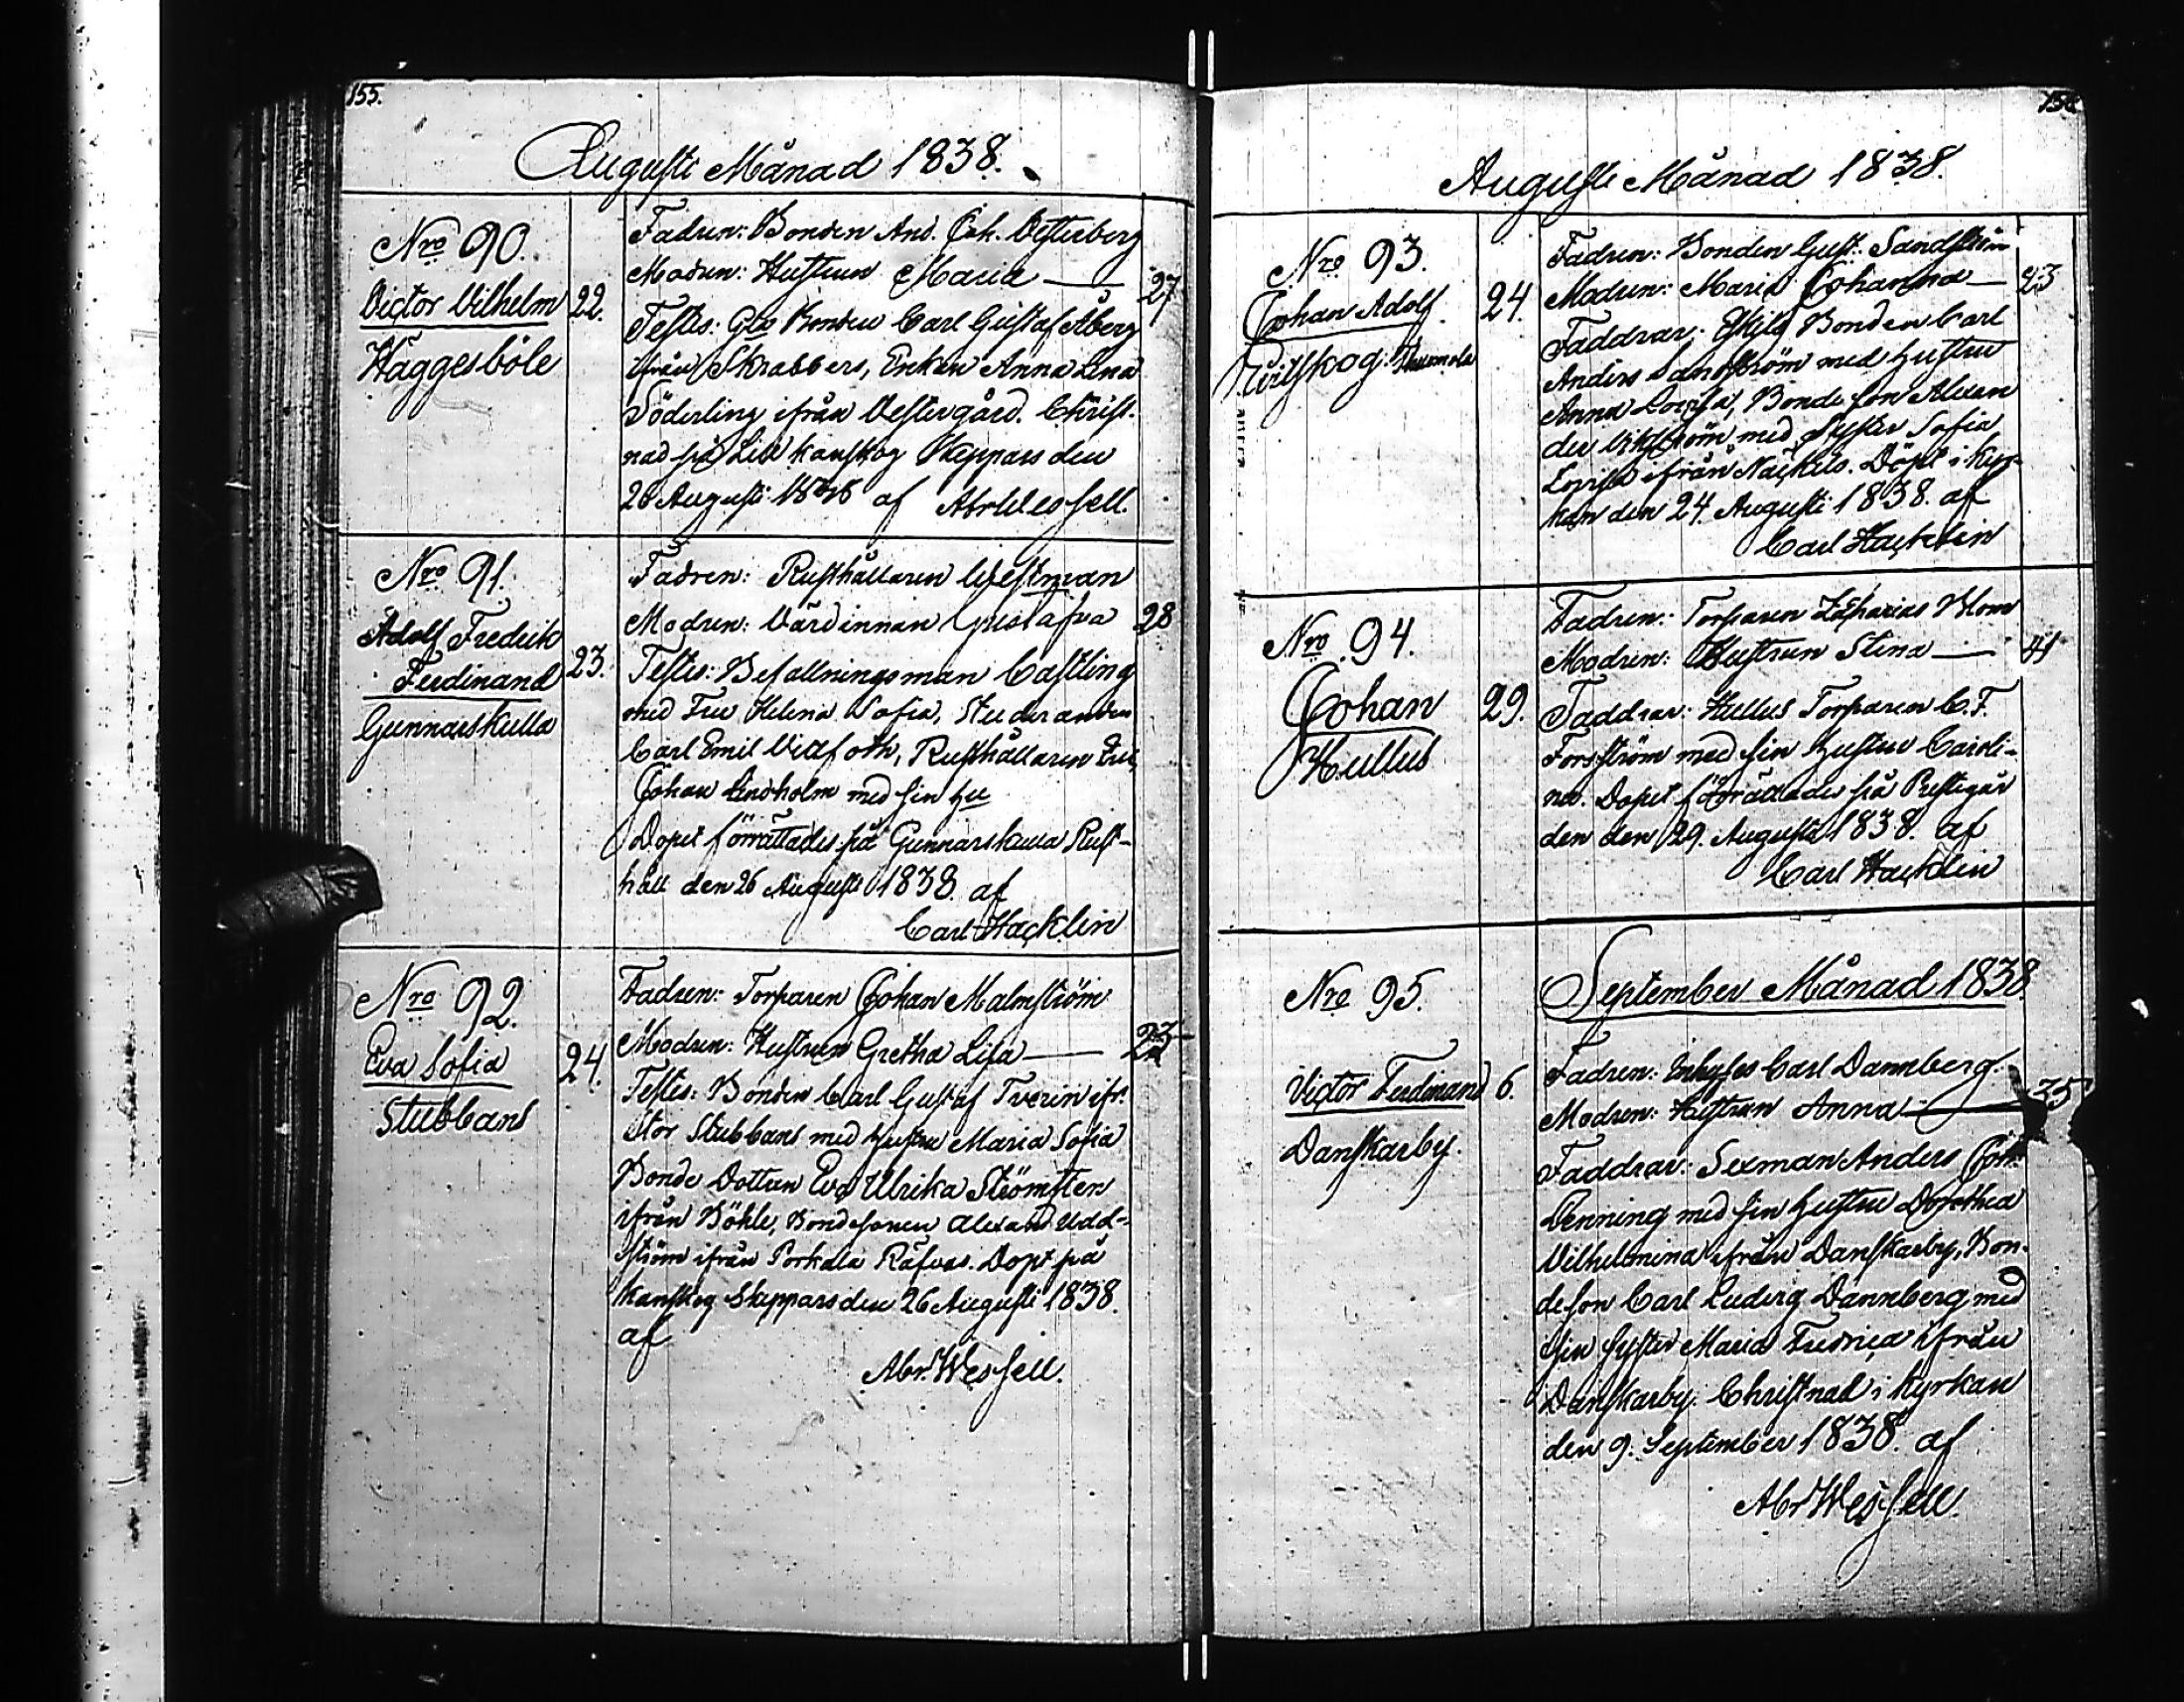 155.
Augusti Månad 1838.
Nro 90.
Victor Vilhelm
Häggesböle
22.
Fadren: Bonden And. Joh. Österberg
Modren: Hustrun Maria — 27
Testes: Bonden Carl Gustaf Åberg
ifrån Skrabbers, Enkan Anna Lena
Söderling ifrån Vestergård. Christ-
nad på Kanskog Skeppars den
26 Augusti 1838 af Abr Wessell.
Nro 91.
Adolf Fredrik
Ferdinand
Gunnarskulla
23.
Fadren: Rusthållaren Westman
Modren: Värdinnan Gustafva 28
Testes: Befallningsman Castling
med Fru Helena Sofia, Studeranden
Carl Emil, Rusthållaren
Johan Lindholm med sin hu
Dopet förrättades på Gunnarskulla Rust-
håll den 26 Augusti 1838. af
Carl Hacklin
Nro 92.
Eva Sofia
Stubbans
24.
Fadren: Torparen Johan Malmström
Modren: Hustrun Gretha Lisa — 23
Testes: Bonden Carl Gustaf Tverin ifr.
Stor Stubbans med hustru Maria Sofia
Bonde Dottren Eva Ulrika Strömsten
ifrån Böhle, Bondesonen Alexand. Udd-
ström ifrån Porkala Räfvas. Döpt på
Kanskog Skeppars den 26 Augusti 1838.
af
Abr. Wessell.
Augusti Månad 1838.
Nro 93.
Johan Adolf
24.
Fadren: Bonden Gust. Sandström
Modren: Maria Johanna — 23
Faddrar: Bonden Carl
Anders Sandström med hustru
Anna Lovisa, Bonde son Alexan
der med Syster Sofia
Lovisa ifrån Näckils. Döpt i Kyr-
kan den 24. Augusti 1838. af
Carl Hacklin
Nro 94.
Johan
Hullus
29.
Fadren: Torparen Zacharias Blom
Modren: Hustrun Stina — 41
Faddrar: Hullus Torparen C. F.
Forsström med sin hustru Caroli-
na. Dopet förrättades på Prestgår
den den 29. Augusti 1838. af
Carl Hacklin
September Månad 1838.
Nro 95.
Victor Ferdinand
Danskarby.
6.
Fadren: Inhyses Carl Dannberg.
Modren: Hustrun Anna — 35
Faddrar: Sexman Anders Joh.
Denning med sin hustru Dorothea
Vilhelmina ifrån Danskarby, Bon-
deson Carl Ludvig Dannberg med
sin syster Maria Fredrica ifrån
Danskarby. Christnad i Kyrkan
den 9. September 1838. af
Abr Wessell.